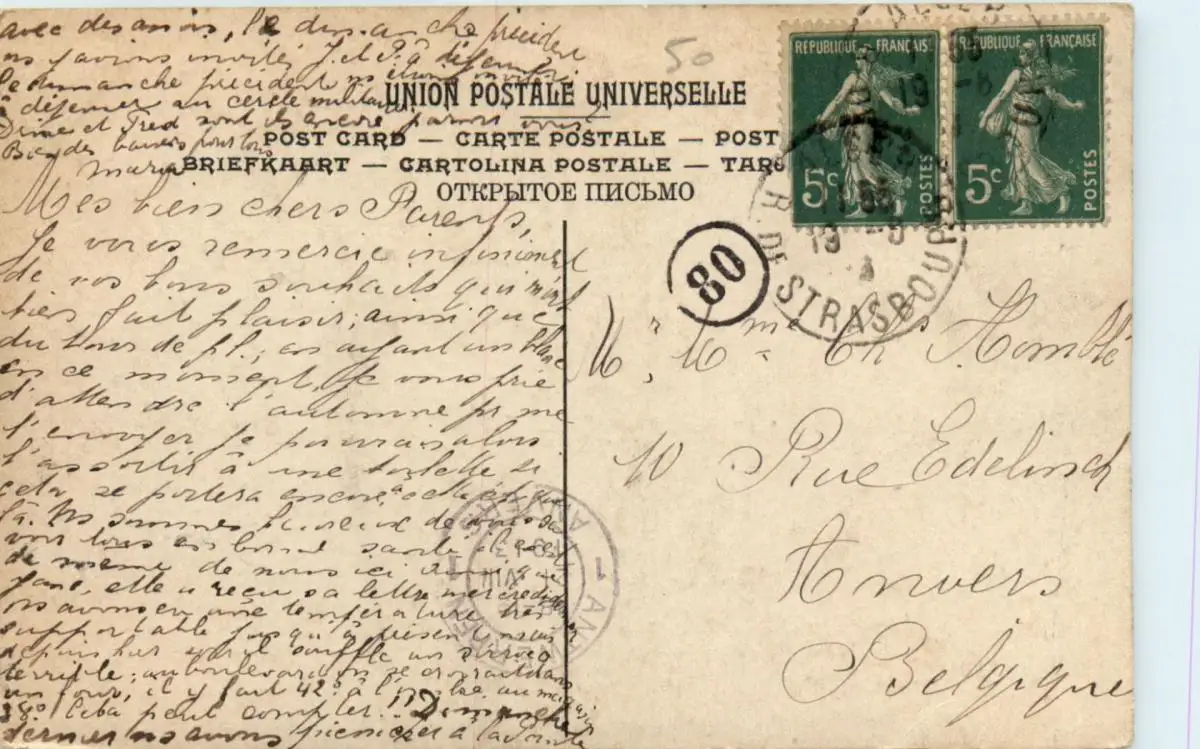 avec des amis, le dimanche précédent
ns avions invités J. et P. à déjeuner
le dimanche précédent ns étions invités
à déjeuner au cercle militaire
et Fred sont ils encore parmi vous?
Bien des baisers pour tous
Maria
50
UNION POSTALE UNIVERSELLE
POST CARD — CARTE POSTALE — POST
BRIEFKAART — CARTOLINA POSTALE — TARS
ОТКРЫТОЕ ПИСЬМО
RÉPUBLIQUE FRANÇAISE
5c
POSTES
RÉPUBLIQUE FRANÇAISE
5c
POSTES
R. DE STRASBOURG
80
Mes bien chers Parents,
Je vous remercie infiniment
de vos bons souhaits qui m'ont
bien fait plaisir; ainsi que
du tours de pl.; en ayant un blanc
en ce moment, je vous prie
d'attendre l'automne pr me
l'envoyer je pourrais alors
l'assortir à une toilette si
cela se portera encore à
là. Ns sommes heureux de vous sa-
voir tous en bonne santé il en est
de même de nous ici
elle a reçu sa lettre mercredi
ns avons eu une température très
supportable jusqu'à présent mais
depuis hier souffle un siroco
terrible; au boulevard on se croirait dans
un four, il y fait 42° à l'ombre, au magasin
38° cela peut compter!! Dimanche
dernier ns avons pique niqué à la Pointe
Mr. Mme Ch Homblé
10 Rue Edelinck
Anvers
Belgique
1 ANTWERPEN 1
ANVERS
VIII